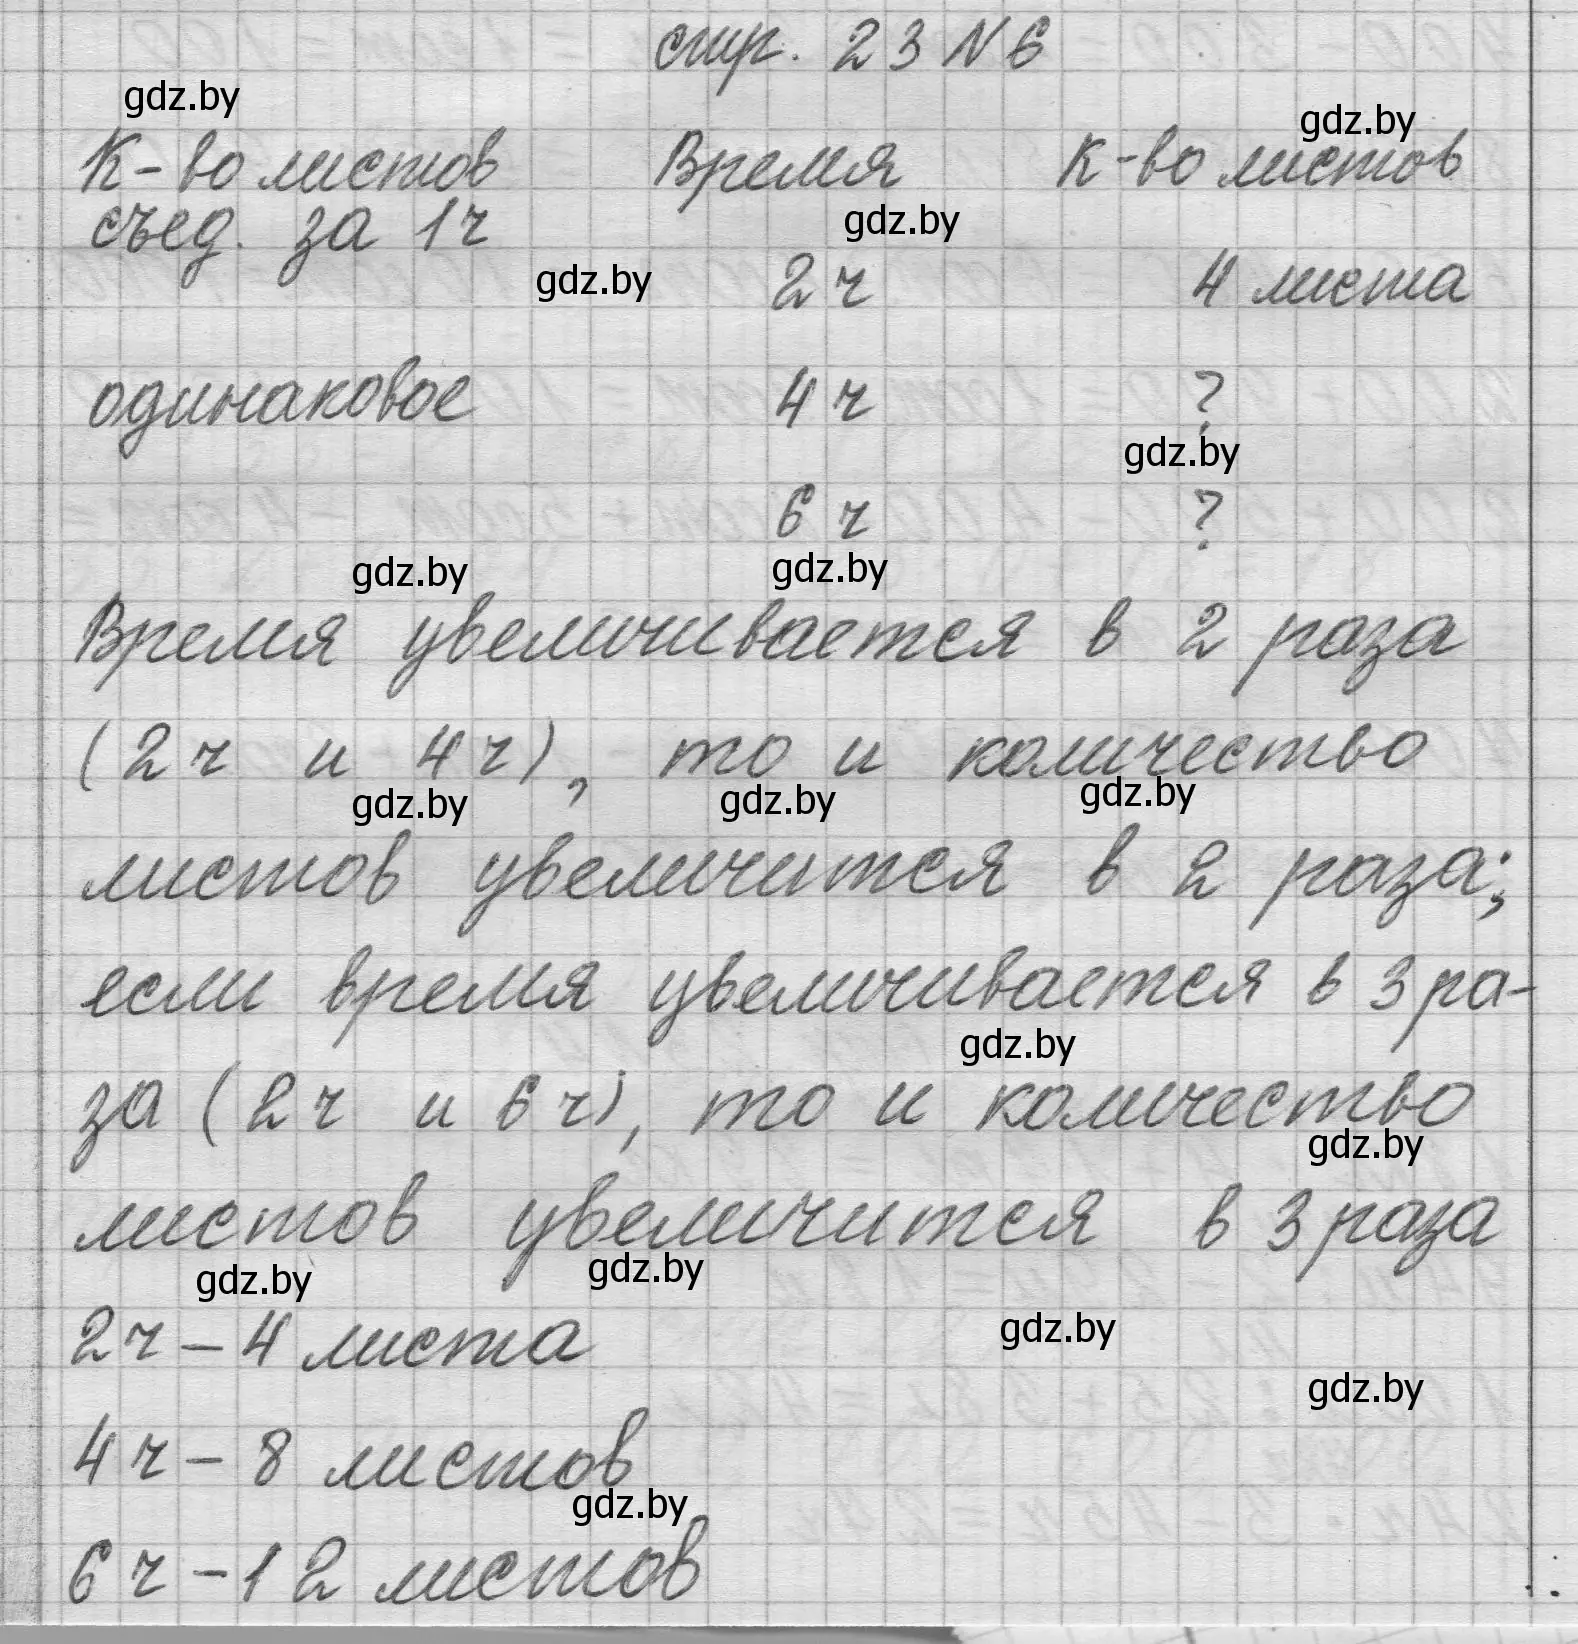 стр. 23 N 6
gdz.by
gdz.by
К-во листов Время К-во листов
съед. за 1ч
gdz.by
gdz.by
2 ч 4 листа
одинаковое 4 ч ?
gdz.by
6 ч ?
gdz.by gdz.by
Время увеличивается в 2 раза
(2ч и 4ч), то и количество
gdz.by gdz.by gdz.by
листов увеличится в 2 раза;
если время увеличивается в 3 ра-
gdz.by
за (2ч и 6ч), то и количество
gdz.by
листов увеличится в 3 раза
gdz.by gdz.by
2ч – 4 листа
gdz.by
gdz.by
4ч – 8 листов
gdz.by
6ч – 12 листов